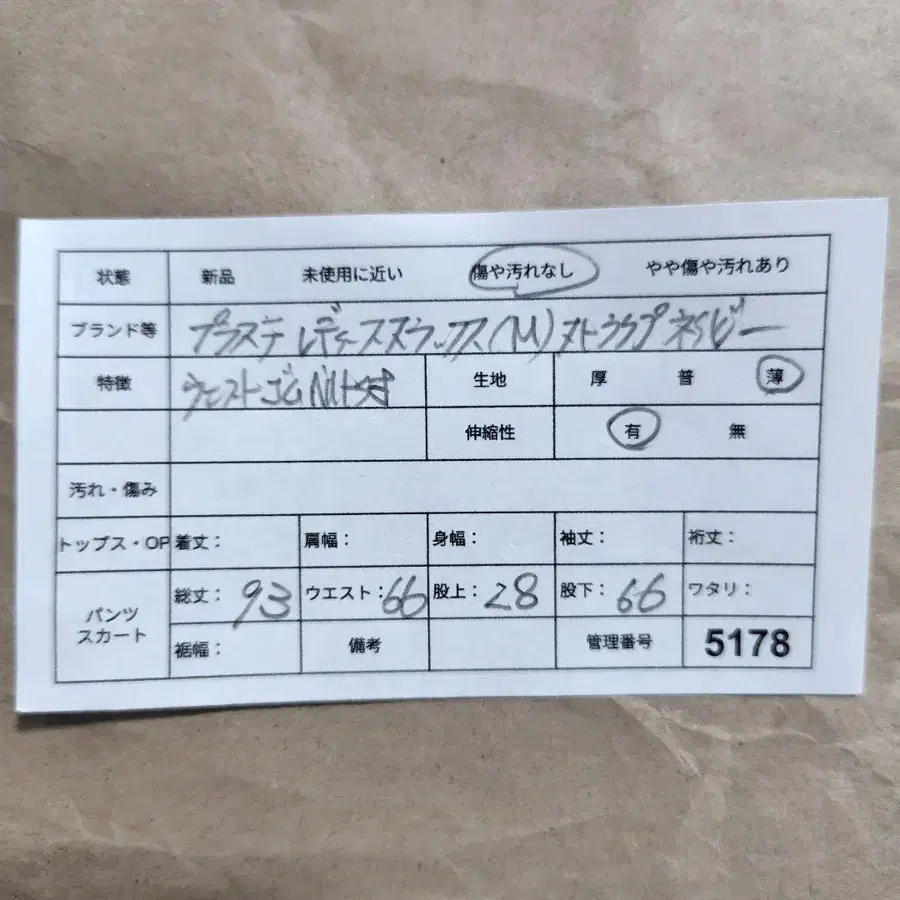 状態 新品 未使用に近い 傷や汚れなし やや傷や汚れあり
ブランド等 プラステ レディーススラックス(M) ストライプ ネイビー
特徴 ウェストゴム ベルト付 生地 厚 普 薄
伸縮性 有 無
汚れ・傷み
トップス・OP 着丈: 肩幅: 身幅: 袖丈: 裄丈:
パンツ スカート 総丈: 93 ウエスト: 66 股上: 28 股下: 66 ワタリ:
裾幅: 備考 管理番号 5178